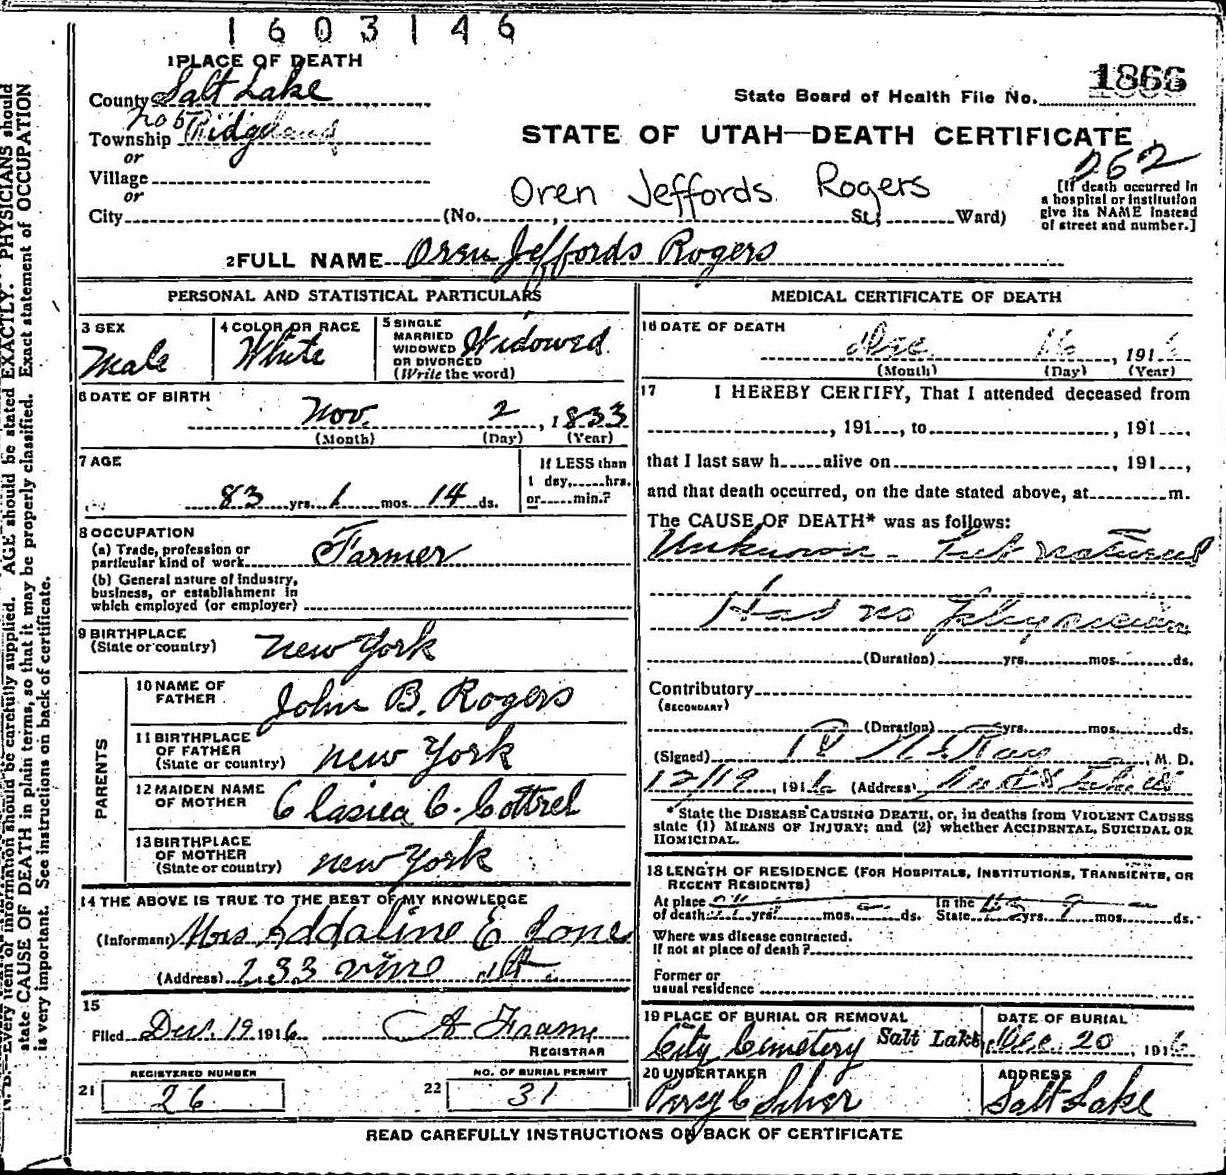 1603146
1 PLACE OF DEATH
County Salt Lake
State Board of Health File No. 1866
Township No 5 Ridgeland
STATE OF UTAH—DEATH CERTIFICATE
or
262
Village
or
Oren Jeffords Rogers
[If death occurred in
a hospital or institution
give its NAME instead
of street and number.]
City (No. , St; Ward)
2 FULL NAME Oren Jeffords Rogers
PERSONAL AND STATISTICAL PARTICULARS
3 SEX
Male
4 COLOR OR RACE
White
5 SINGLE
MARRIED
WIDOWED
OR DIVORCED
(Write the word)
Widowed
6 DATE OF BIRTH
Nov. 2, 1833
(Month) (Day) (Year)
7 AGE
83 yrs. 1 mos. 14 ds.
If LESS than
1 day, hrs.
or min.?
8 OCCUPATION
(a) Trade, profession or
particular kind of work Farmer
(b) General nature of industry,
business, or establishment in
which employed (or employer)
9 BIRTHPLACE
(State or country) New York
PARENTS
10 NAME OF
FATHER John B. Rogers
11 BIRTHPLACE
OF FATHER
(State or country) New York
12 MAIDEN NAME
OF MOTHER C. Cottrel
13 BIRTHPLACE
OF MOTHER
(State or country) New York
14 THE ABOVE IS TRUE TO THE BEST OF MY KNOWLEDGE
(Informant) Mrs Addaline E Lone
(Address) 233 Vine St.
15
Filed Dec. 19 1916
REGISTRAR
REGISTERED NUMBER
21 26
NO. OF BURIAL PERMIT
22 31
MEDICAL CERTIFICATE OF DEATH
16 DATE OF DEATH
Dec 16, 1916
(Month) (Day) (Year)
17 I HEREBY CERTIFY, That I attended deceased from
, 191 , to , 191 ,
that I last saw h alive on , 191 ,
and that death occurred, on the date stated above, at m.
The CAUSE OF DEATH* was as follows:
Unknown - but natural
Had no physician
(Duration) yrs. mos. ds.
Contributory
(SECONDARY)
(Duration) yrs. mos. ds.
(Signed) , M. D.
12/19, 1916 (Address)
* State the DISEASE CAUSING DEATH, or, in deaths from VIOLENT CAUSES
state (1) MEANS OF INJURY; and (2) whether ACCIDENTAL, SUICIDAL OR
HOMICIDAL.
18 LENGTH OF RESIDENCE (FOR HOSPITALS, INSTITUTIONS, TRANSIENTS, OR
RECENT RESIDENTS)
At place
of death yrs. mos. ds.
In the
State yrs. 9 mos. ds.
Where was disease contracted.
If not at place of death?
Former or
usual residence
19 PLACE OF BURIAL OR REMOVAL
City Cemetery Salt Lake
DATE OF BURIAL
Dec. 20, 1916
20 UNDERTAKER
Percy C Silver
ADDRESS
Salt Lake
READ CAREFULLY INSTRUCTIONS ON BACK OF CERTIFICATE
N. B.—Every item of information should be carefully supplied. AGE should be stated EXACTLY. PHYSICIANS should
state CAUSE OF DEATH in plain terms, so that it may be properly classified. Exact statement of OCCUPATION
is very important. See instructions on back of certificate.